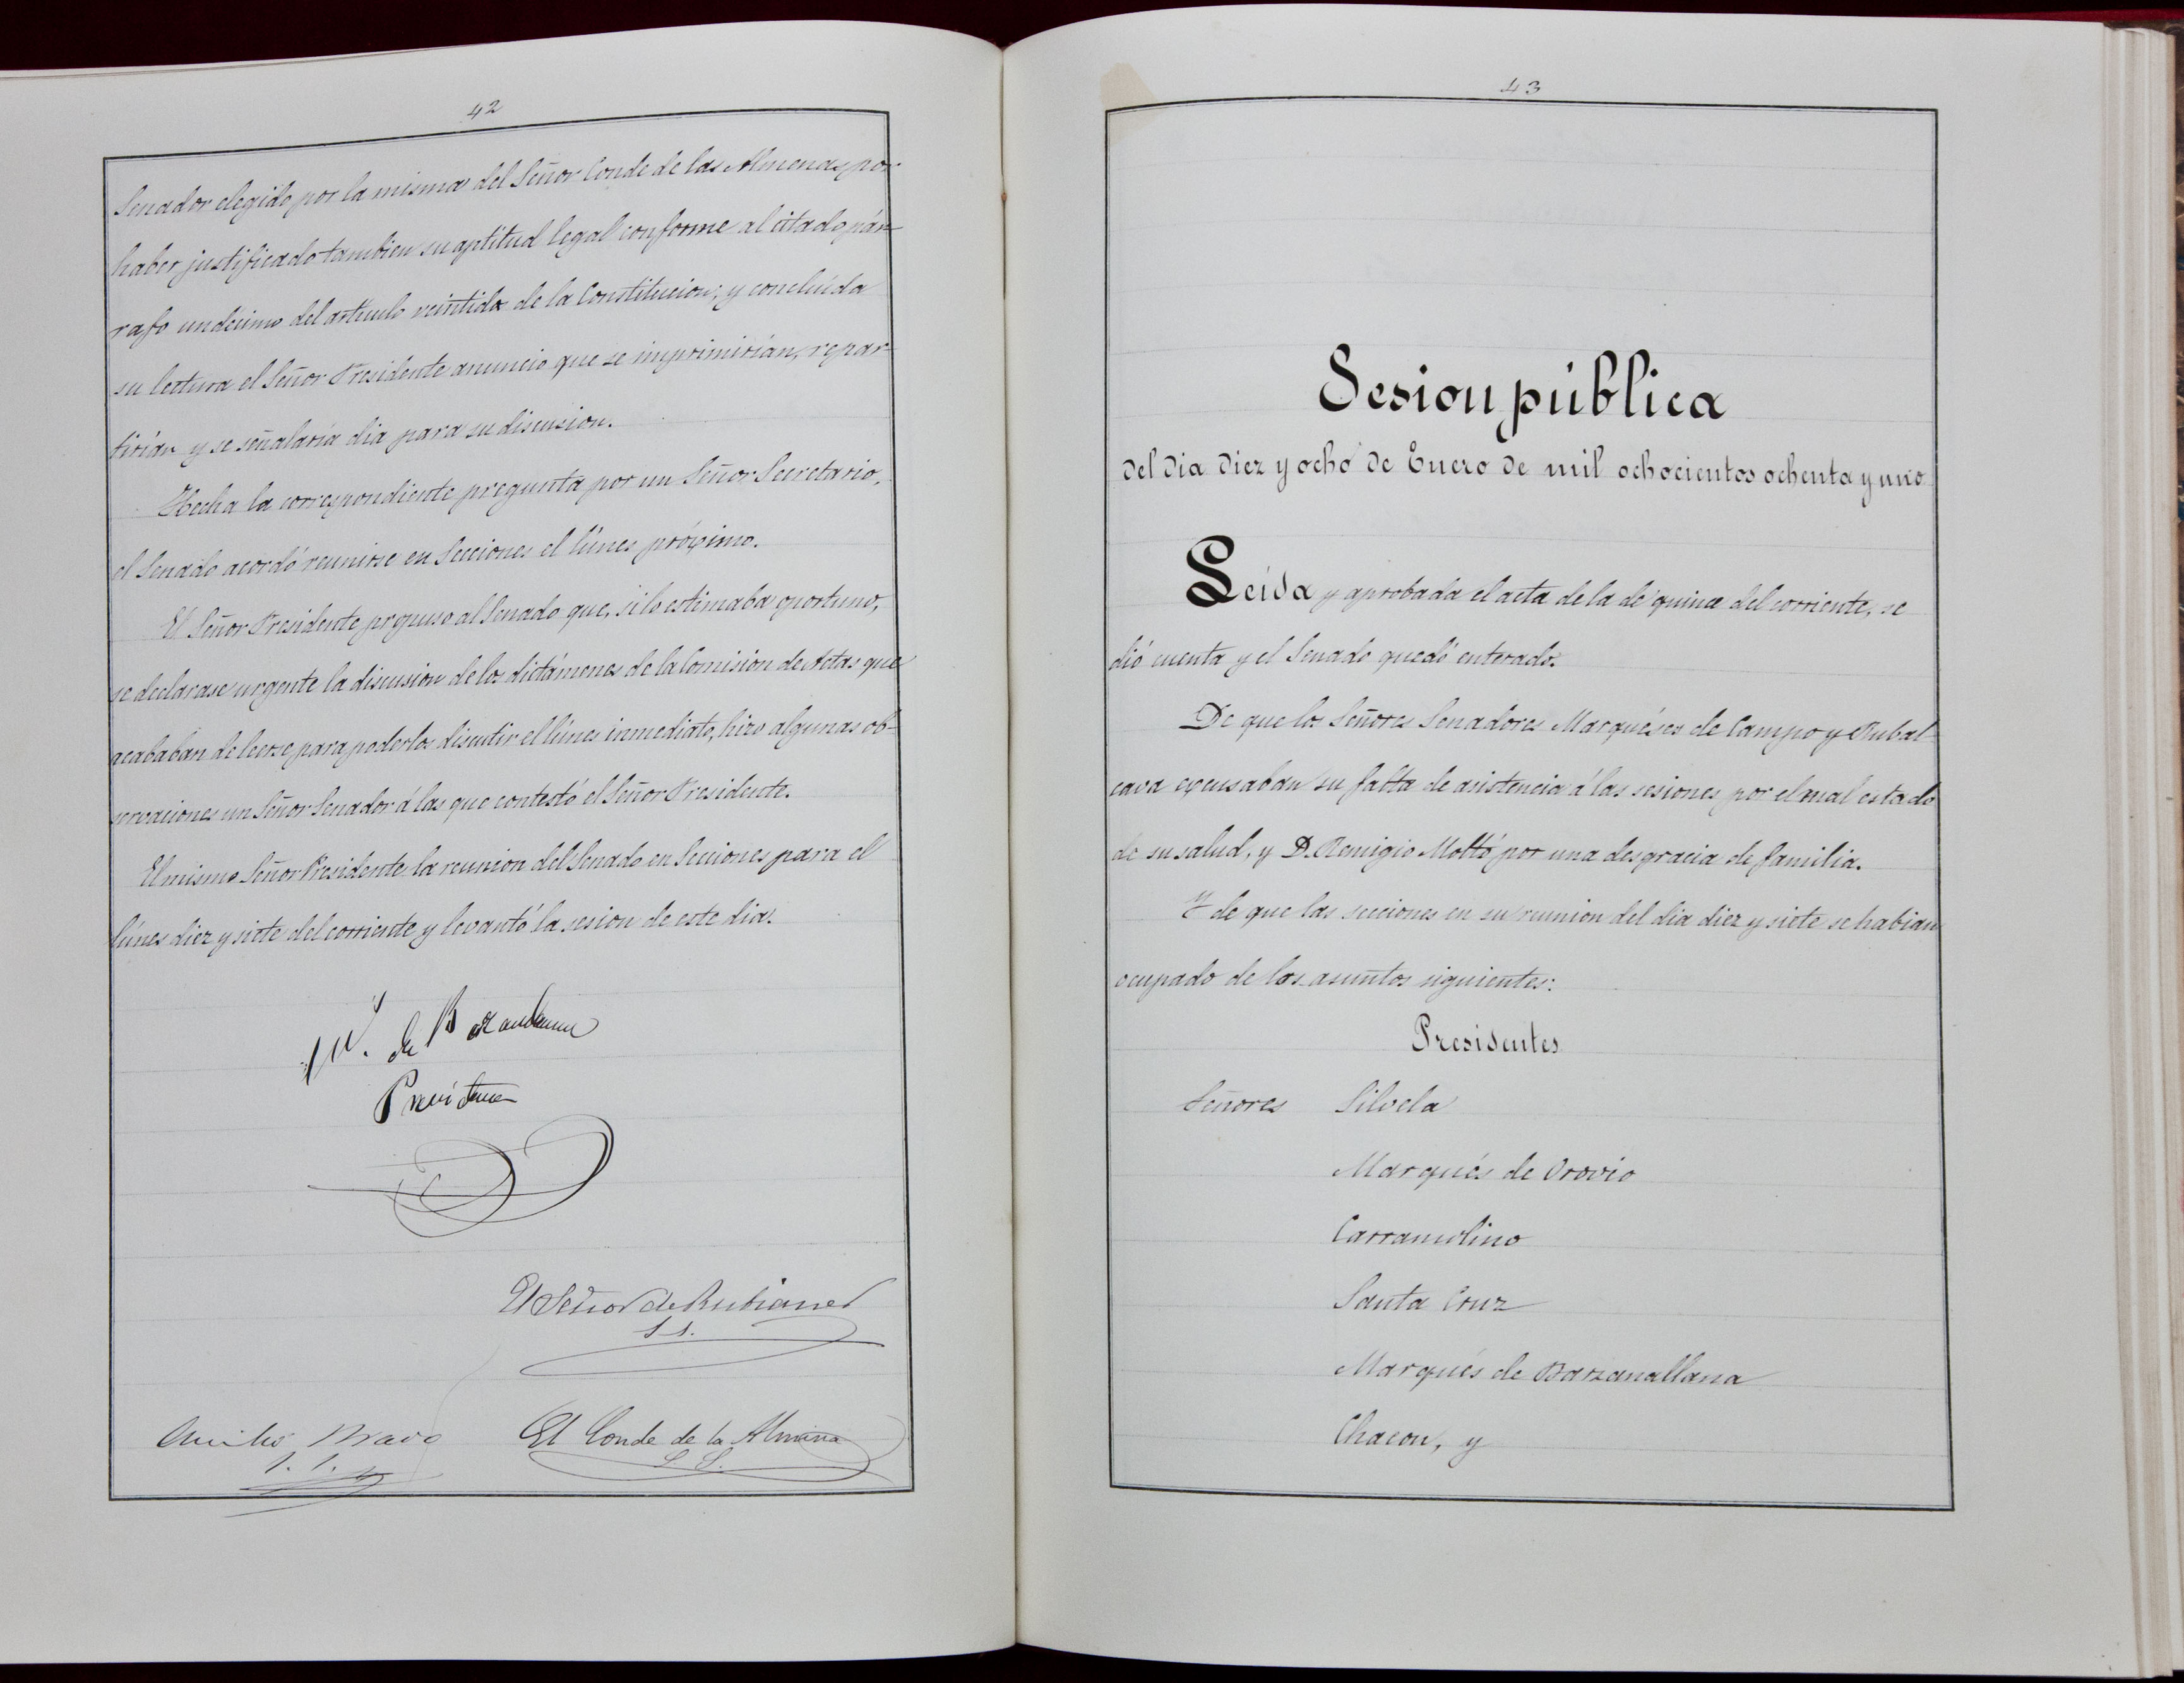 42
Senador elegido por la misma del Señor Conde de las Almenas, por
haber justificado tambien su aptitud legal conforme al citado pár-
rafo undécimo del artículo veintidos de la Constitucion; y concluída
su lectura el Señor Presidente anunció que se imprimirían, repar-
tirían y se señalaría dia para su discusion.
Hecha la correspondiente pregunta por un Señor Secretario,
el Senado acordó reunirse en Secciones el lúnes próximo.
El Señor Presidente propuso al Senado que, si lo estimaba oportuno,
se declarase urgente la discusion de los dictámenes de la Comision de Actas que
acababan de leerse para poderlos discutir el lúnes inmediato, hizo algunas ob-
servaciones un Señor Senador á las que contestó el Señor Presidente.
El mismo Señor Presidente la reunion del Senado en Secciones para el
lúnes diez y siete del corriente y levantó la sesion de este dia.
M. de Barzanallana
Presidente
El Señor de Rubianes
S. S.
Bravo
El Conde de la Almina
S. S.
43
Sesion pública
del dia diez y ocho de Enero de mil ochocientos ochenta y uno
Leida y aprobada el acta de la de quince del corriente, se
dió cuenta y el Senado quedó enterado.
De que los Señores Senadores Marquéses de Campo y Rubal-
cava escusaban su falta de asistencia á las sesiones por el mal estado
de su salud, y D. Remigio Moltó por una desgracia de familia.
Y de que las secciones en su reunion del dia diez y siete se habian
ocupado de los asuntos siguientes:
Presidentes
Señores Silvela
Marqués de Orovio
Carramolino
Santa Cruz
Marqués de Barzanallana
Chacon, y